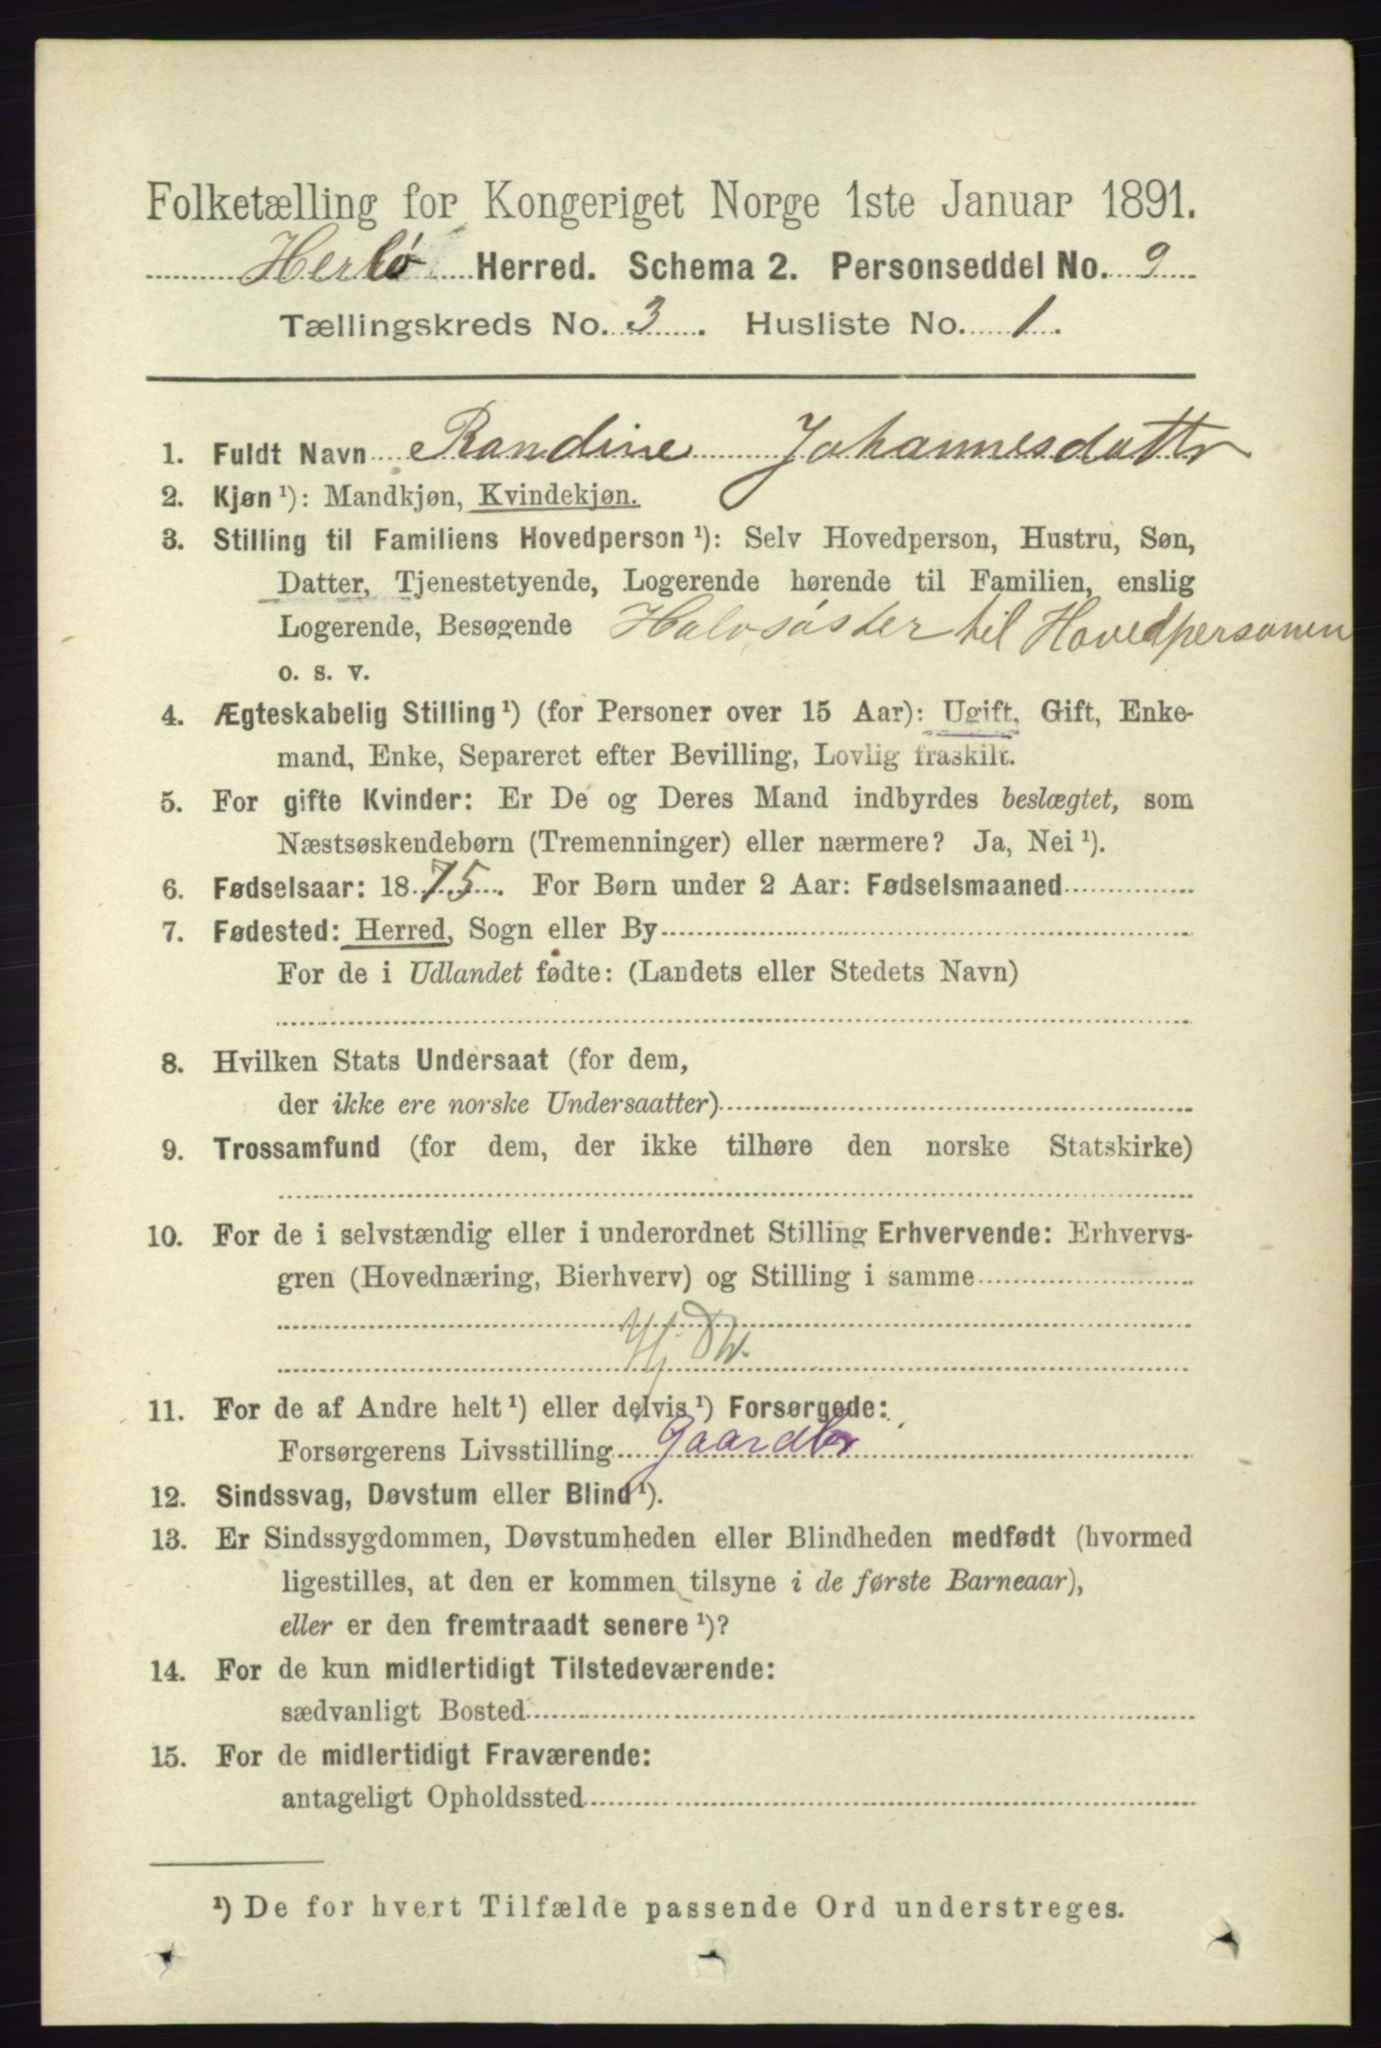 Folketælling for Kongeriget Norge 1ste Januar 1891.
Herlø Herred. Schema 2. Personseddel No. 9
Tællingskreds No. 3. Husliste No. 1.
1. Fuldt Navn Randine Johannesdattr
2. Kjøn¹): Mandkjøn, Kvindekjøn.
3. Stilling til Familiens Hovedperson¹): Selv Hovedperson, Hustru, Søn,
Datter, Tjenestetyende, Logerende hørende til Familien, enslig
Logerende, Besøgende Halvsøster til Hovedpersonen
o. s. v.
4. Ægteskabelig Stilling¹) (for Personer over 15 Aar): Ugift, Gift, Enke-
mand, Enke, Separeret efter Bevilling, Lovlig fraskilt.
5. For gifte Kvinder: Er De og Deres Mand indbyrdes beslægtet, som
Næstsøskendebørn (Tremenninger) eller nærmere? Ja, Nei¹).
6. Fødselsaar: 1875. For Børn under 2 Aar: Fødselsmaaned
7. Fødested: Herred, Sogn eller By
For de i Udlandet fødte: (Landets eller Stedets Navn)
8. Hvilken Stats Undersaat (for dem,
der ikke ere norske Undersaatter)
9. Trossamfund (for dem, der ikke tilhøre den norske Statskirke)
10. For de i selvstændig eller i underordnet Stilling Erhvervende: Erhvervs-
gren (Hovednæring, Bierhverv) og Stilling i samme
11. For de af Andre helt¹) eller delvis¹) Forsørgede:
Forsørgerens Livsstilling Gaardbr
12. Sindssvag, Døvstum eller Blind¹).
13. Er Sindssygdommen, Døvstumheden eller Blindheden medfødt (hvormed
ligestilles, at den er kommen tilsyne i de første Barneaar),
eller er den fremtraadt senere¹)?
14. For de kun midlertidigt Tilstedeværende:
sædvanligt Bosted
15. For de midlertidigt Fraværende:
antageligt Opholdssted
¹) De for hvert Tilfælde passende Ord understreges.